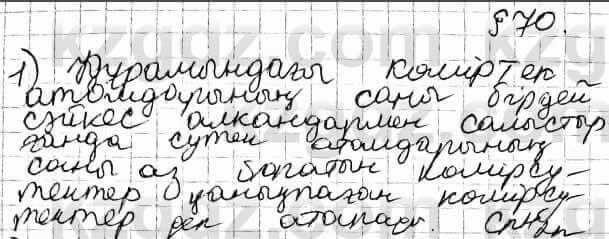 §70.
1) Құрамындағы көміртек
атомдарының саны бірдей
сәйкес алкандармен салыстыр
ғанда сутек атомдарының
саны аз болатын көмірсу-
тектер қанықпаған көмірсу-
тектер деп аталады. CnH2n